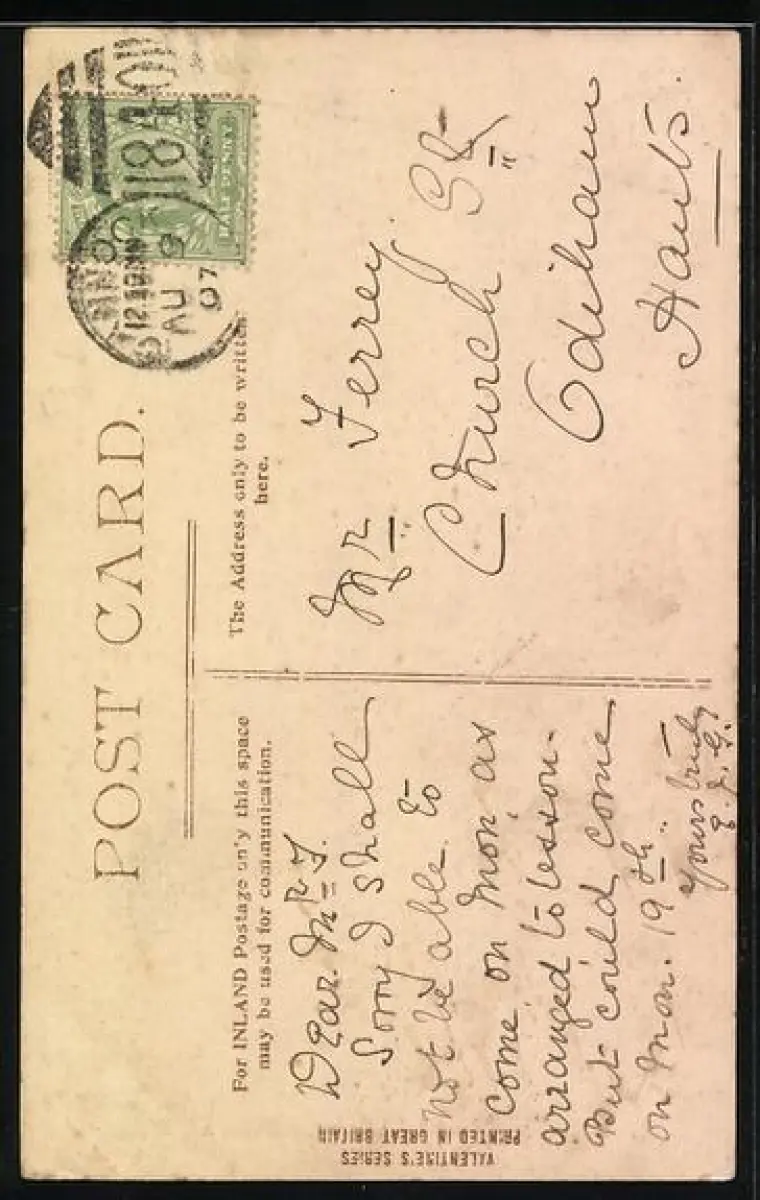 POST CARD.
For INLAND Postage only this space
may be used for communication.
The Address only to be written
here.
Dear Mr F.
Sorry I shall
not be able to
come on Mon, as
arranged to lesson.
But could come
on Mon. 19th.
Yours truly
E. J. G.
Mr Ferrey
Church St
Odiham
Hants.
HALF PENNY
184
12.30PM
AU 9
07
VALENTINE'S SERIES
PRINTED IN GREAT BRITAIN